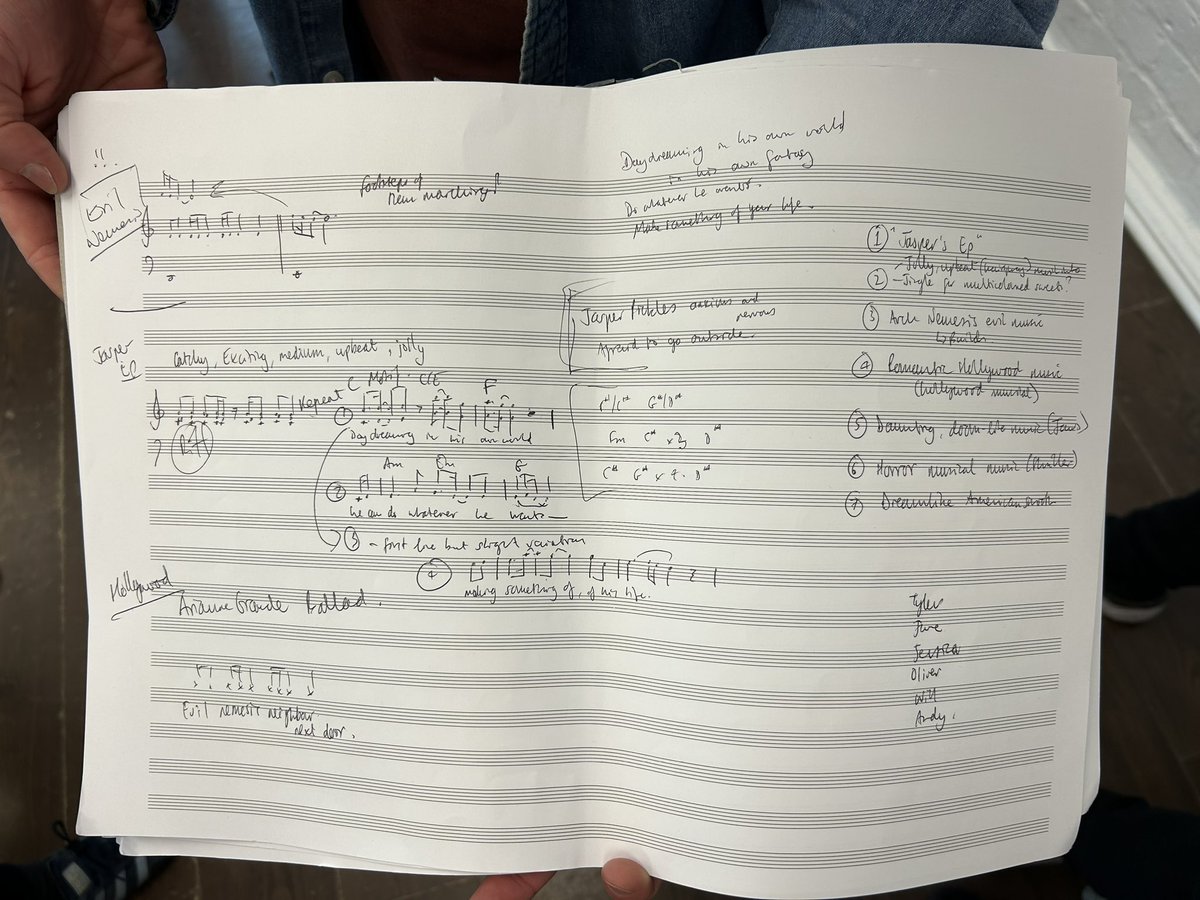 !!
Evil
Nemesis
footsteps of
men marching!
Jasper
EP
Catchy, Exciting, medium, upbeat, jolly
Repeat
C Motif. C/E F
1
Daydreaming in his own world
Am Dm G
2
he can do whatever he wants
3 - first line but slight variation
4
making something of, of his life.
Hollywood
Ariana Grande Ballad.
Evil nemesis neighbour
next door.
Daydreaming in his own world
in his own fantasy
Do whatever he wants.
Make something of your life.
Jasper Pickles anxious and
nervous
Afraid to go outside.
1 "Jasper's Ep"
- Jolly, upbeat
2 - Jingle for multicoloured sweets?
3 Arch Nemesis evil music
↳ Builds
4 Romantic Hollywood music
(hollywood musical)
5 Daunting, doom-like music (Jaws)
6 Horror musical music (thriller)
7 Dreamlike American
Tyler
June
Jessica
Oliver
Will
Andy.